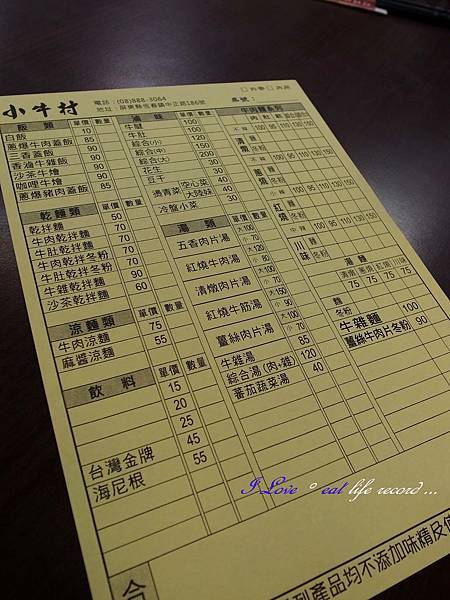 小牛村
電話：(08)888-3064
地址：屏東縣恆春鎮中正路186號
□外帶 □內用
桌號：
飯類 單價 數量
白飯 10
蔥爆牛肉蓋飯 85
三香蓋飯 90
香滷牛雜燴 90
沙茶牛燴 90
咖哩牛燴 90
蔥爆豬肉蓋飯 85
乾麵類 單價 數量
乾拌麵 50
牛肉乾拌麵 70
牛肚乾拌麵 70
牛肉乾拌冬粉 70
牛肚乾拌冬粉 70
牛雜乾拌麵 90
沙茶乾拌麵 60
涼麵類 單價 數量
牛肉涼麵 75
麻醬涼麵 55
飲料 單價 數量
15
20
25
台灣金牌 45
海尼根 55
滷味 單價 數量
牛腱 100
牛肚 100
綜合(小) 120
綜合(中) 150
綜合(大) 200
花生 30
豆干 30
燙青菜 空心菜 40
大陸妹 40
冷盤小菜 30
湯類 單價 數量
五香肉片湯 大100 小70
紅燒牛肉湯 大120 小70
清燉肉片湯 大100 小70
紅燒牛筋湯 大150 小90
薑絲肉片湯 大100 小70
牛雜湯 85
綜合湯(肉+雜) 120
蕃茄蔬菜湯 40
牛肉麵系列
清燉 麵 冬粉
不辣 100 95 110 150 150
蔥燒 麵 冬粉
不辣 100 95 110 150
紅燒 麵 冬粉
中辣 100 95 110 150
川味 麵 冬粉
100 95 110 150
湯麵
清燉 蔥燒 紅燒 川味
麵 75 75 75 75
冬粉
牛雜麵 100
薑絲牛肉片冬粉 90
I Love ° eat life record ...
合
列產品均不添加味精及